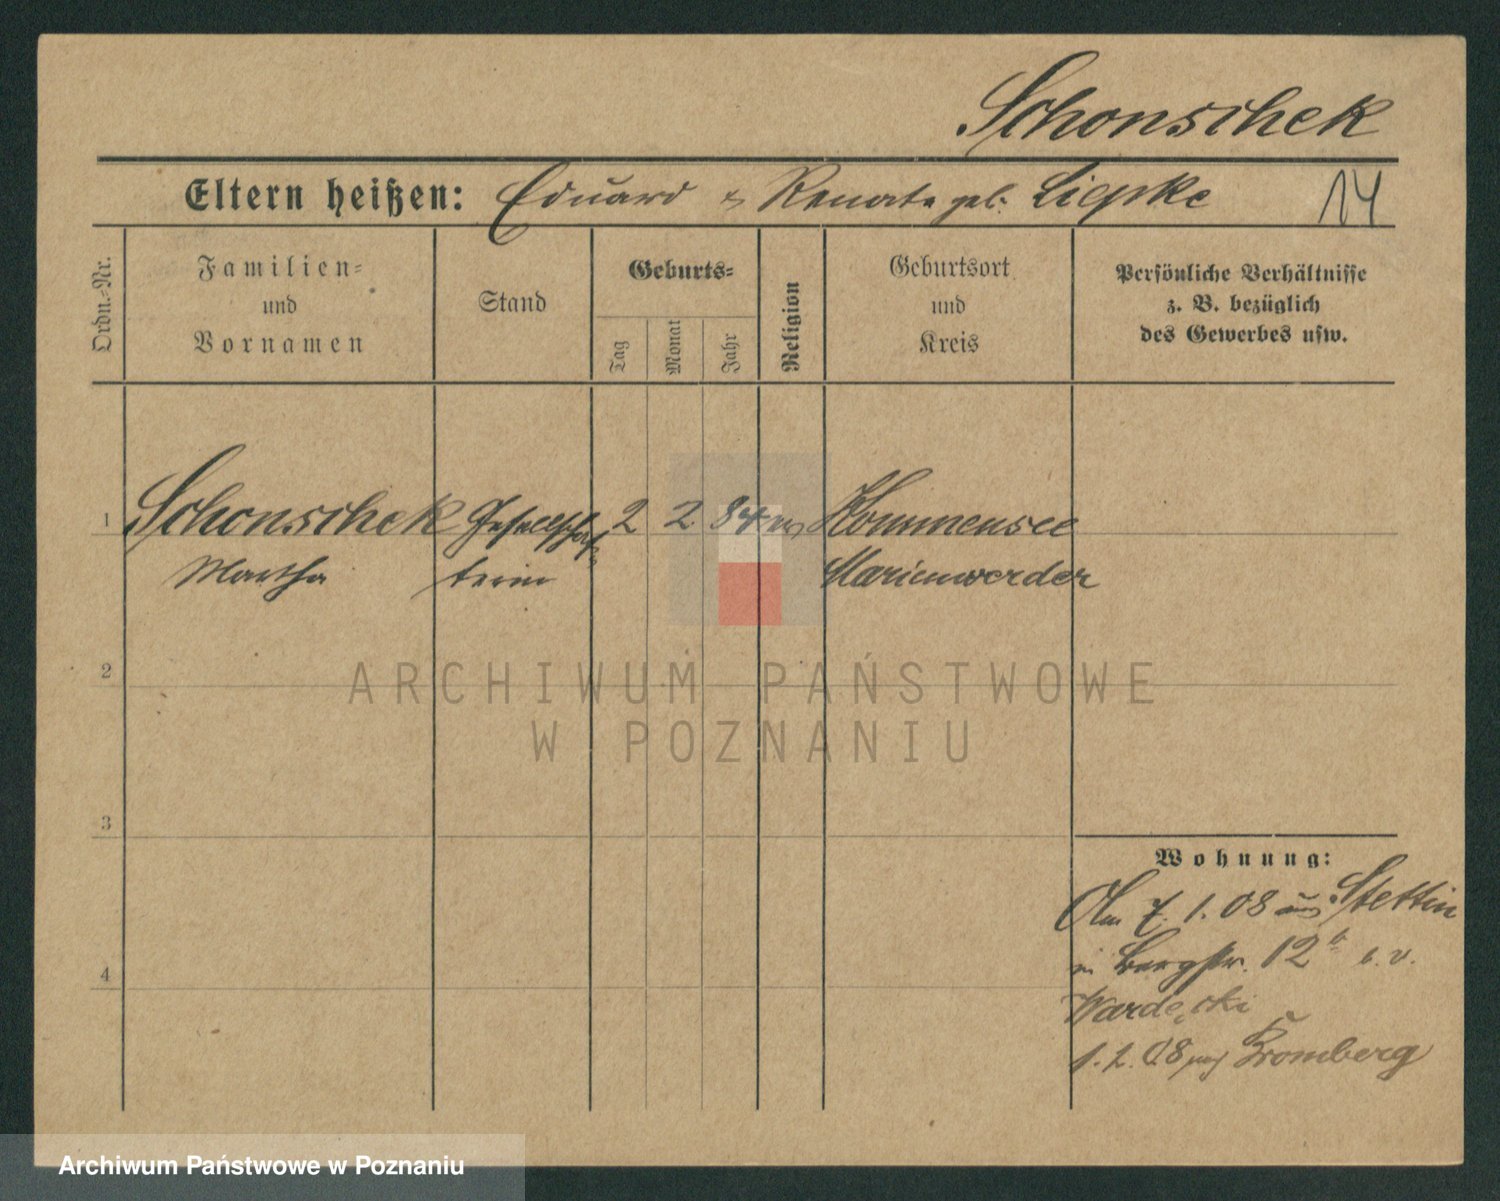 Schonschek
Eltern heißen: Eduard & Renate geb. Liepke 14
Ordn.-Nr.
Familien-
und
Vornamen
Stand
Geburts-
Tag
Monat
Jahr
Religion
Geburtsort
und
Kreis
Persönliche Verhältnisse
z. B. bezüglich
des Gewerbes usw.
1 Schonschek Gesellschaf- 2 2 84 Kommensee
Martha terin Marienwerder
2
3
4
ARCHIWUM PAŃSTWOWE
W POZNANIU
Wohnung:
Am 7. 1. 08 aus Stettin
in Bergstr. 12 b b. v.
Wardeski
1. 2. 08 nach Bromberg
Archiwum Państwowe w Poznaniu